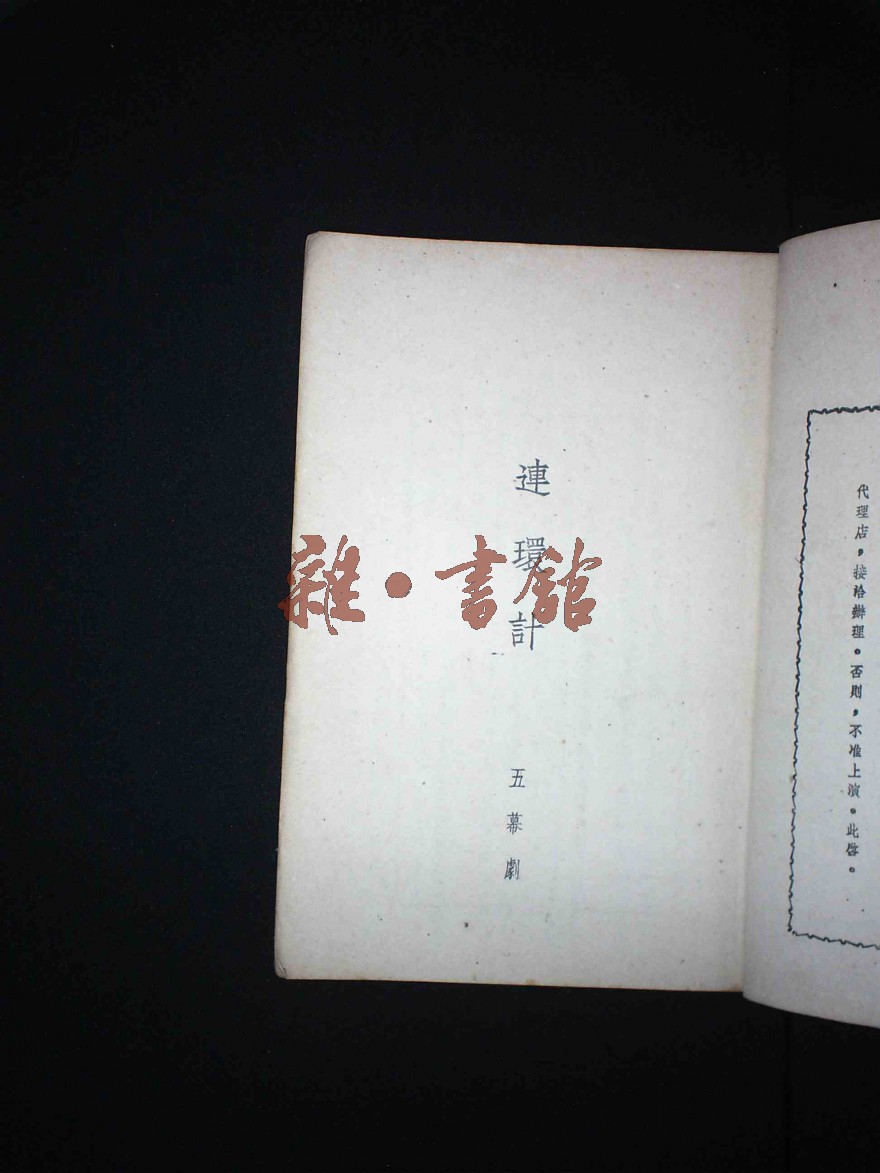 代理店，接洽辦理。否則，不准上演。此啓。
連環計
五幕劇
雜·書館